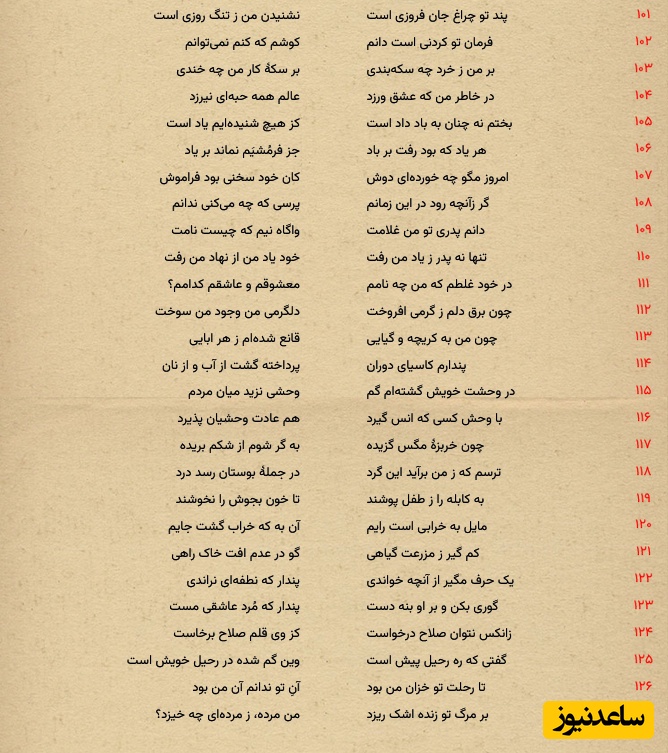 ۱۰۱ پند تو چراغ جان فروزی است نشنیدن من ز تنگ روزی است
۱۰۲ فرمان تو کردنی است دانم کوشم که کنم نمی‌توانم
۱۰۳ بر من ز خرد چه سکه‌بندی بر سکهٔ کار من چه خندی
۱۰۴ در خاطر من که عشق ورزد عالم همه حبه‌ای نیرزد
۱۰۵ بختم نه چنان به باد داد است کز هیچ شنیده‌ایم یاد است
۱۰۶ هر یاد که بود رفت بر باد جز فرمُشیَم نماند بر یاد
۱۰۷ امروز مگو چه خورده‌ای دوش کان خود سخنی بود فراموش
۱۰۸ گر زآنچه رود در این زمانم پرسی که چه می‌کنی ندانم
۱۰۹ دانم پدری تو من غلامت واگاه نیم که چیست نامت
۱۱۰ تنها نه پدر ز یاد من رفت خود یاد من از نهاد من رفت
۱۱۱ در خود غلطم که من چه نامم معشوقم و عاشقم کدامم؟
۱۱۲ چون برق دلم ز گرمی افروخت دلگرمی من وجود من سوخت
۱۱۳ چون من به کریچه و گیایی قانع شده‌ام ز هر ابایی
۱۱۴ پندارم کاسیای دوران پرداخته گشت از آب و از نان
۱۱۵ در وحشت خویش گشته‌ام گم وحشی نزید میان مردم
۱۱۶ با وحش کسی که انس گیرد هم عادت وحشیان پذیرد
۱۱۷ چون خربزهٔ مگس گزیده به گر شوم از شکم بریده
۱۱۸ ترسم که ز من برآید این گرد در جملهٔ بوستان رسد درد
۱۱۹ به کابله را ز طفل پوشند تا خون بجوش را نخوشند
۱۲۰ مایل به خرابی است رایم آن به که خراب گشت جایم
۱۲۱ کم گیر ز مزرعت گیاهی گو در عدم افت خاک راهی
۱۲۲ یک حرف مگیر از آنچه خواندی پندار که نطفه‌ای نراندی
۱۲۳ گوری بکن و بر او بنه دست پندار که مُرد عاشقی مست
۱۲۴ زانکس نتوان صلاح درخواست کز وی قلم صلاح برخاست
۱۲۵ گفتی که ره رحیل پیش است وین گم شده در رحیل خویش است
۱۲۶ تا رحلت تو خزان من بود آنِ تو ندانم آن من بود
بر مرگ تو زنده اشک ریزد من مرده، ز مرده‌ای چه خیزد؟
ساعدنیوز